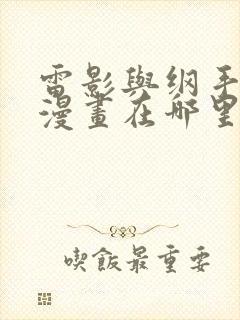 雷影與纲手
漫畫在哪里
喫飯最重要